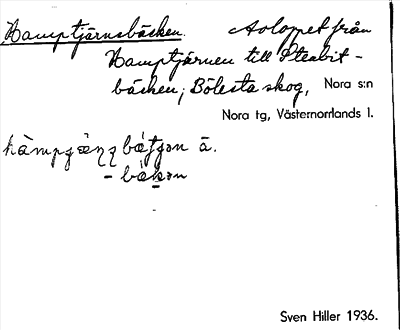 Kamptjärnsbäcken. Avloppet från
Kamptjärnen till Stenbit-
bäcken; Bölesta skog, Nora s:n
Nora tg, Västernorrlands l.
ā.
Sven Hiller 1936.